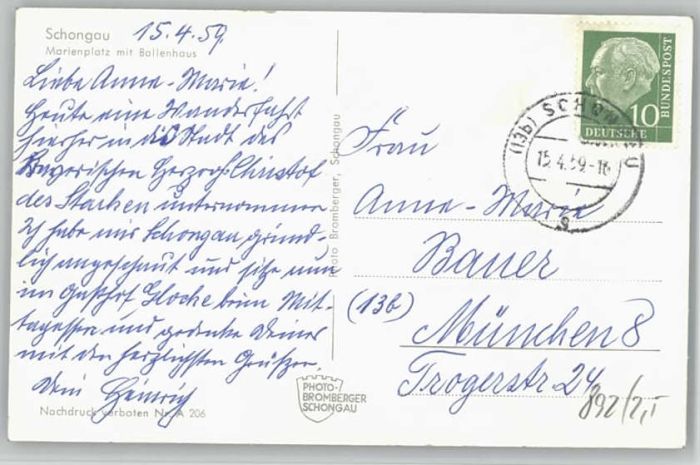 Schongau 15.4.59.
Marienplatz mit Ballenhaus
Liebe Anne-Marie!
Heute eine Wanderfahrt
hierher in die Stadt des
Bayerischen Herzogs Christof
des Starken unternommen
Ich habe mir Schongau gründ-
lich angeschaut und sitze nun
im Gasthof Glocke beim Mit-
tagessen und gedenke Deiner
mit den herzlichsten Grüßen.
Dein Heinrich
Nachdruck verboten Nr. A 206
Photo Bromberger, Schongau
PHOTO-
BROMBERGER
SCHONGAU
10
DEUTSCHE
BUNDESPOST
(13b) SCHONGAU
15.4.59-16
Frau
Anne-Marie
Bauer
(13b)
München 8
Trogerstr. 24
892/2,I